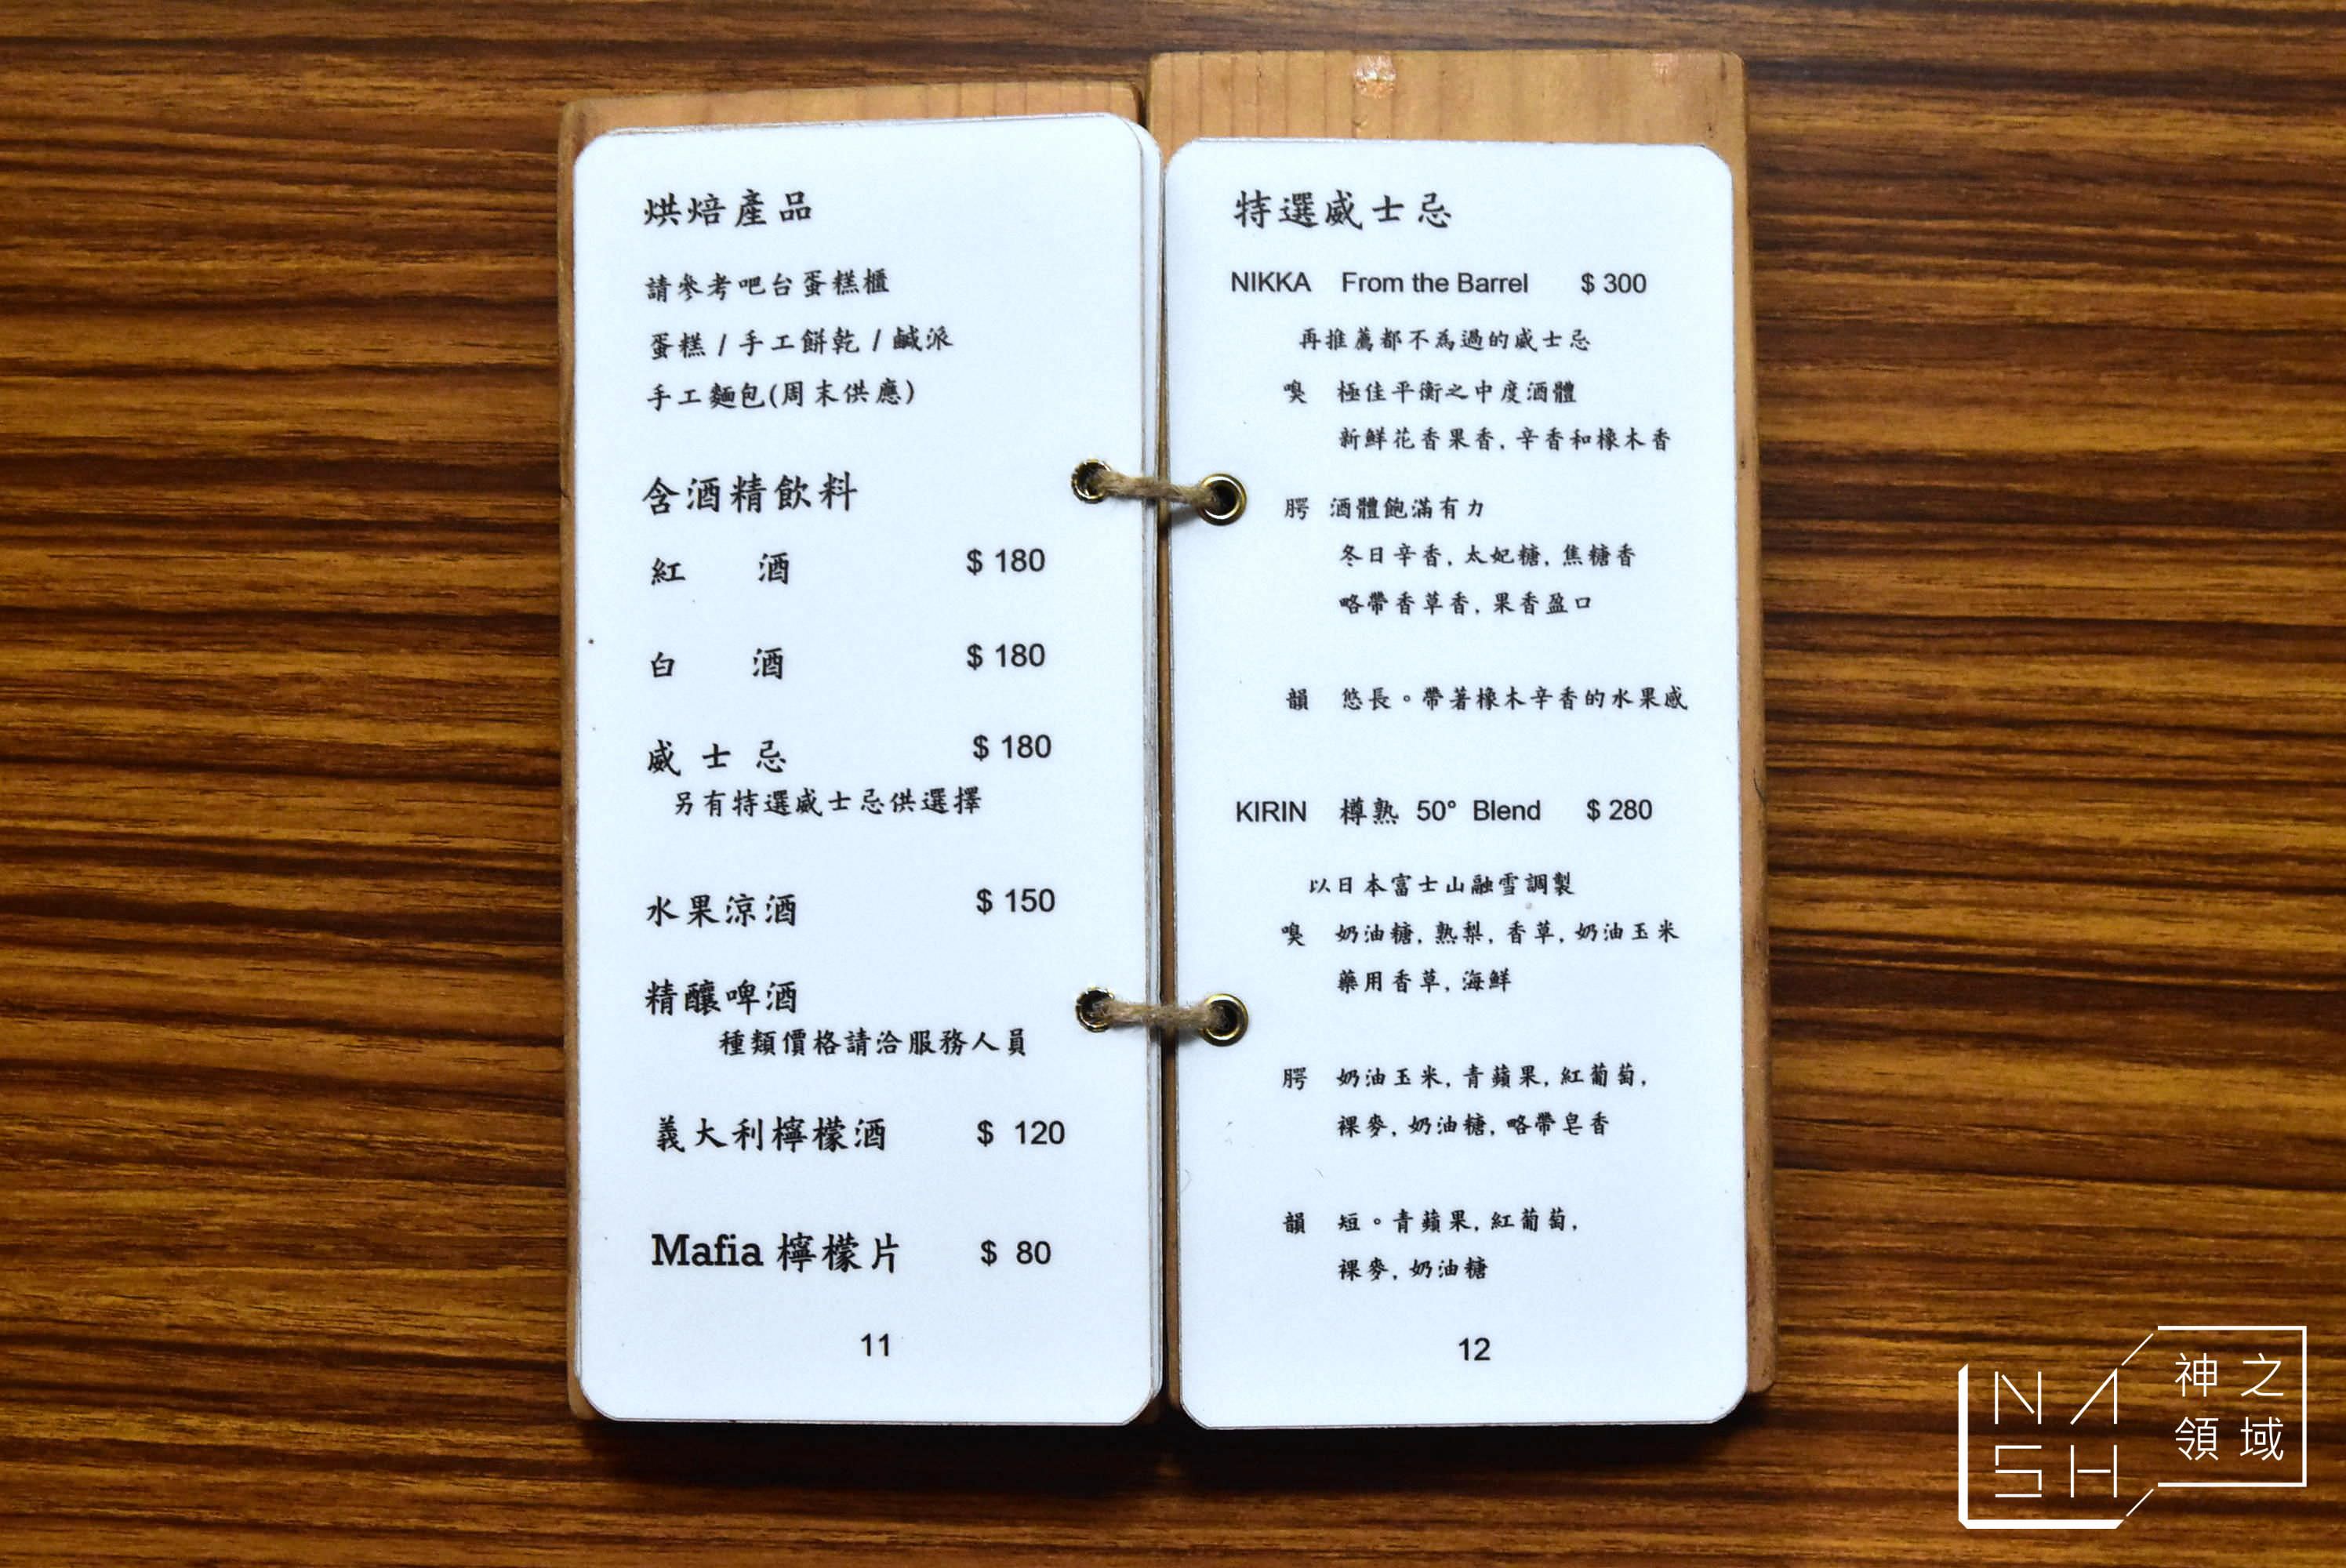 烘焙產品
請參考吧台蛋糕櫃
蛋糕 / 手工餅乾 / 鹹派
手工麵包(周末供應)
含酒精飲料
紅 酒 $ 180
白 酒 $ 180
威 士 忌 $ 180
另有特選威士忌供選擇
水果涼酒 $ 150
精釀啤酒
種類價格請洽服務人員
義大利檸檬酒 $ 120
Mafia 檸檬片 $ 80
11
特選威士忌
NIKKA From the Barrel $ 300
再推薦都不為過的威士忌
嗅 極佳平衡之中度酒體
新鮮花香果香, 辛香和橡木香
腭 酒體飽滿有力
冬日辛香, 太妃糖, 焦糖香
略帶香草香, 果香盈口
韻 悠長。帶著橡木辛香的水果感
KIRIN 樽熟 50° Blend $ 280
以日本富士山融雪調製
嗅 奶油糖, 熟梨, 香草, 奶油玉米
藥用香草, 海鮮
腭 奶油玉米, 青蘋果, 紅葡萄,
裸麥, 奶油糖, 略帶皂香
韻 短。青蘋果, 紅葡萄,
裸麥, 奶油糖
12
NASH
神之領域